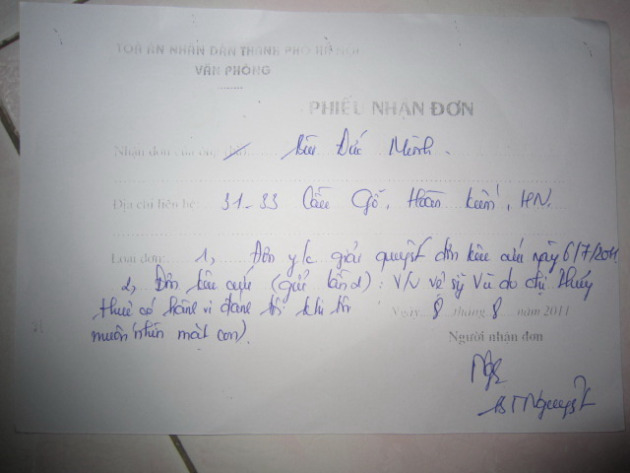 TOÀ ÁN NHÂN DÂN THÀNH PHỐ HÀ NỘI
VĂN PHÒNG
PHIẾU NHẬN ĐƠN
Nhận đơn của ông, Đức Minh.
Địa chỉ liên hệ: 31-33 Cầu Gỗ, Hoàn kiếm, HN.
Loại đơn: 1, Đơn y/c giải quyết đơn kêu cứu ngày 6/7/2011
2, Đơn kêu cứu (gửi lần 2): V/v vệ sỹ Vũ do chị Thúy
thuê có hành vi đánh tôi khi tôi
muốn nhìn mặt con).
Ngày 8 tháng 8 năm 2011
Người nhận đơn
Nguyệt